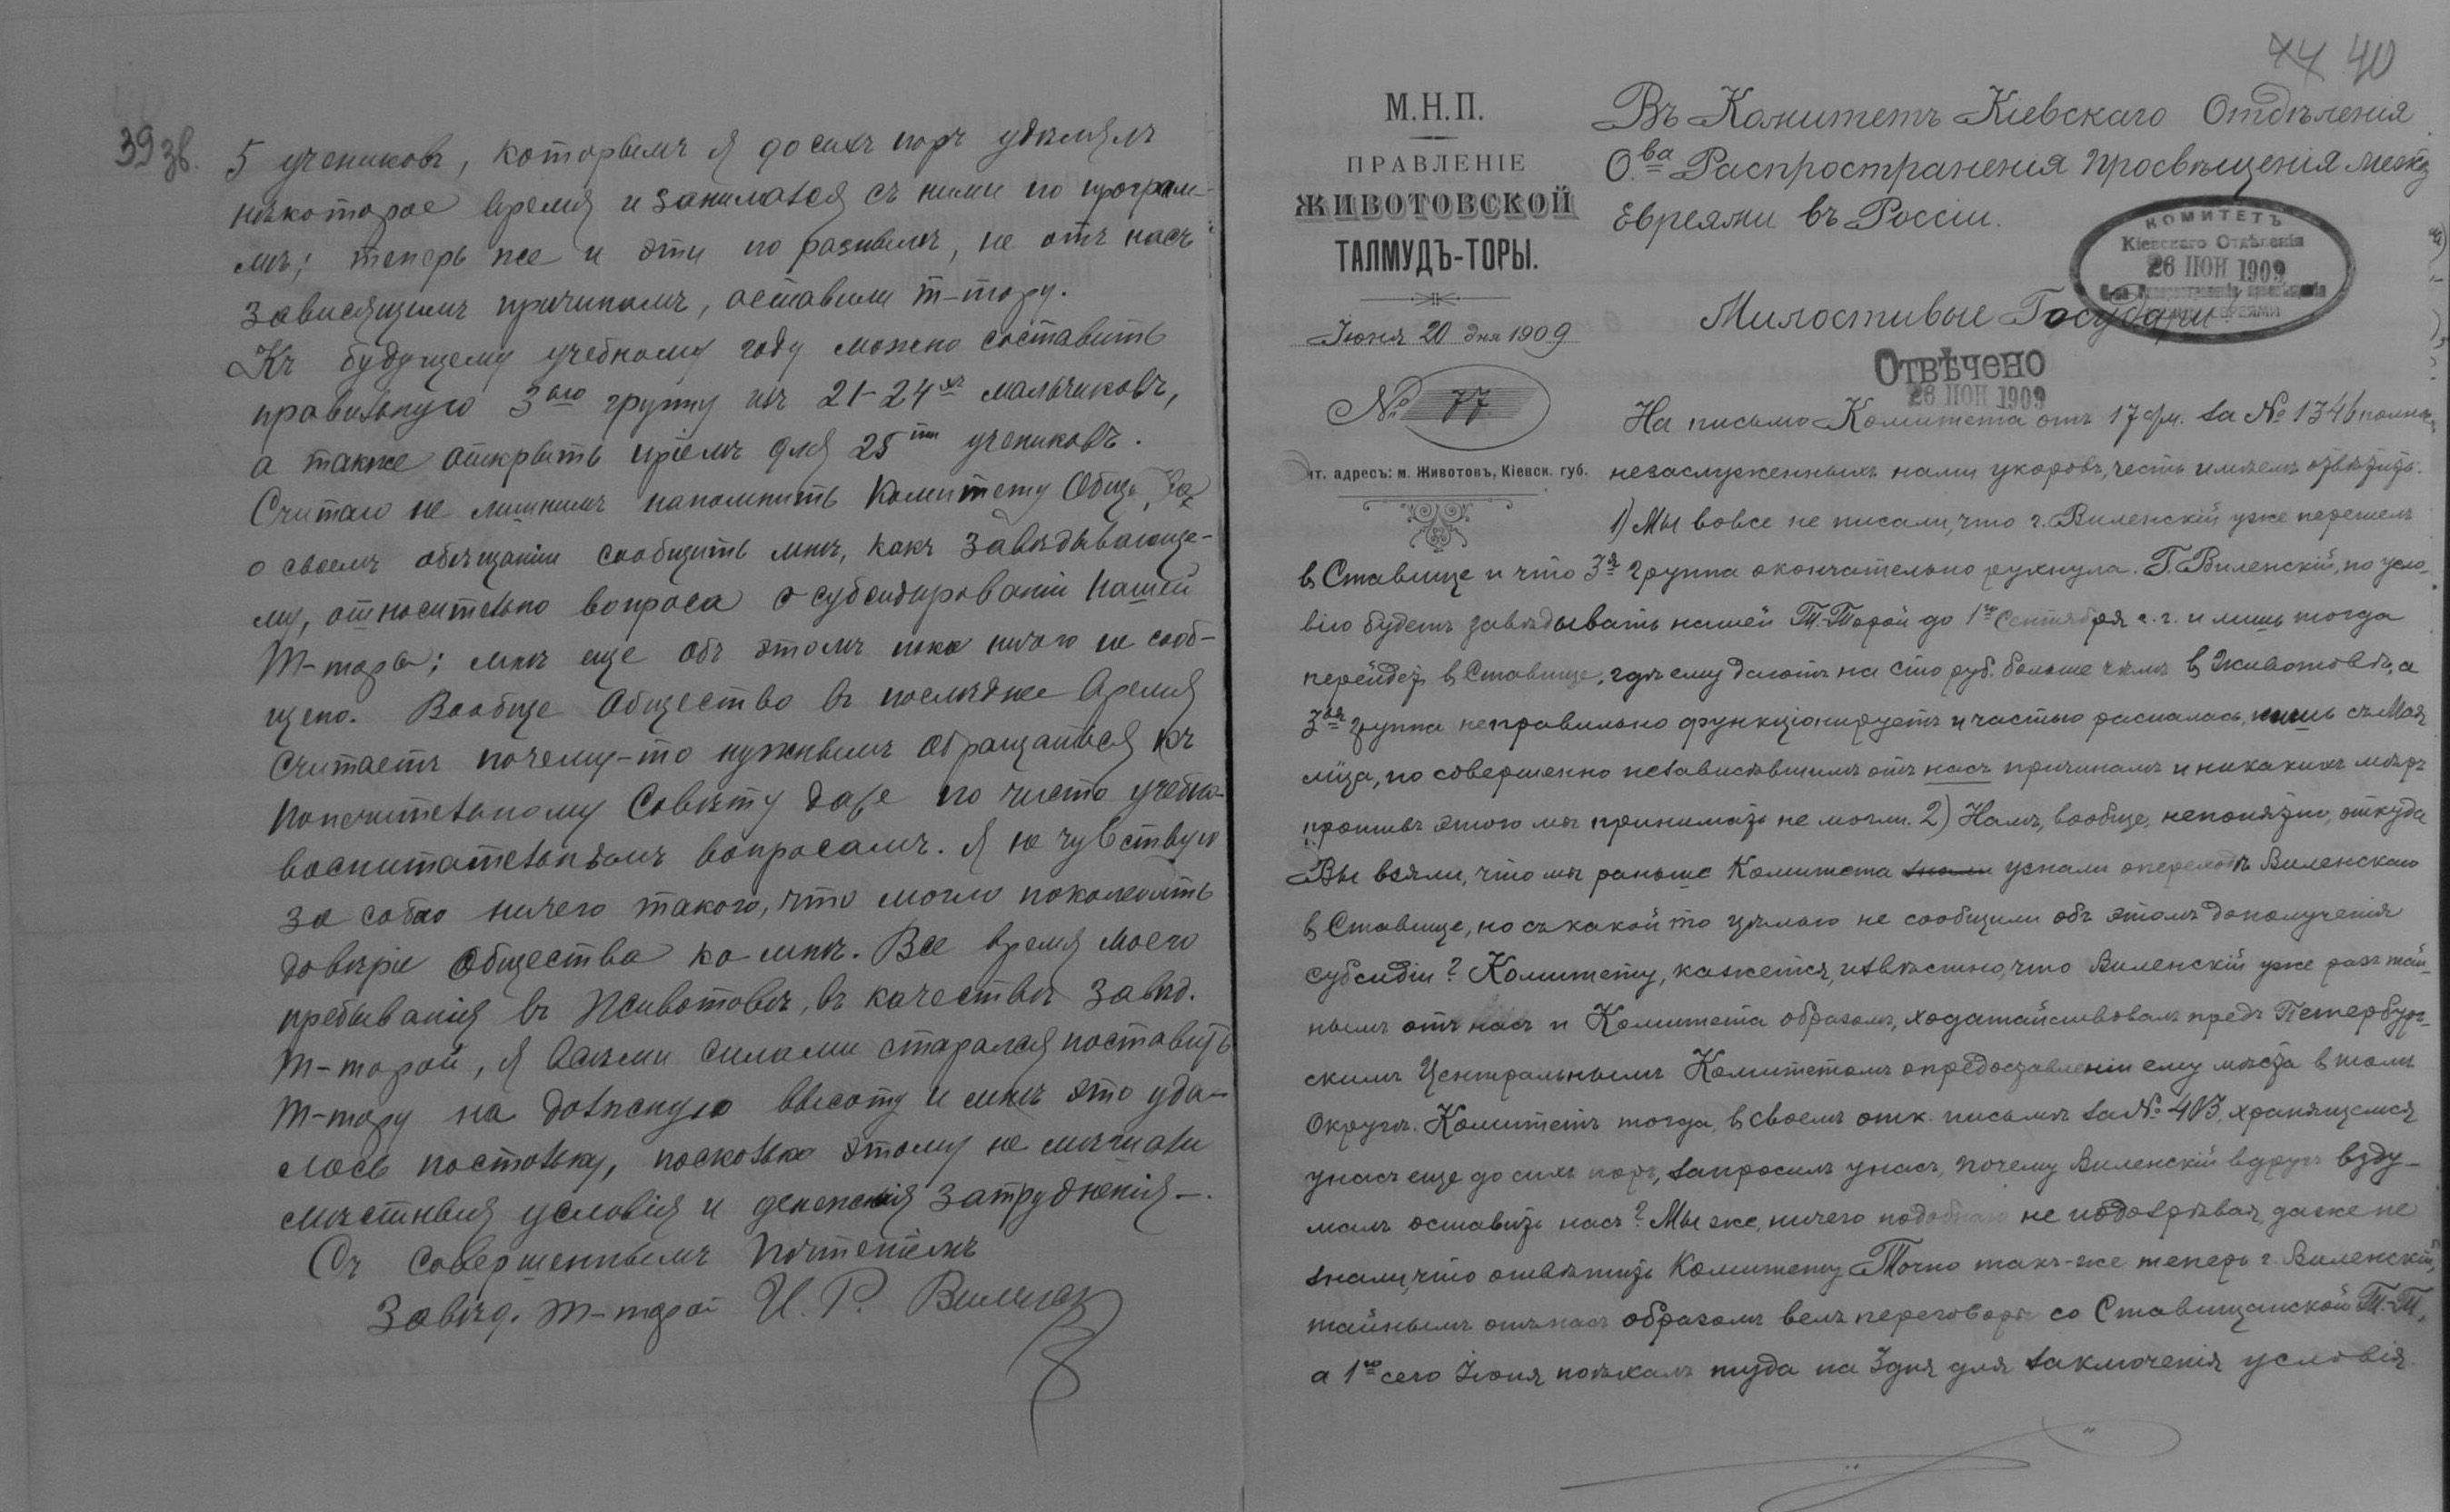 39 зв.
5 учениковъ, которымъ я до сихъ поръ удѣлялъ
нѣкоторое время и занимался съ ними по програм-
мѣ; теперь же и эти по разнымъ, не отъ насъ
зависящимъ причинамъ, оставили т-тору.
Къ будущему учебному году можно составить
правильную 3ью группу изъ 21-24хъ мальчиковъ,
а также открыть пріемъ для 25ти учениковъ.
Считаю не лишнимъ напомнить Комитету Общ.
о своемъ обѣщаніи сообщить мнѣ, какъ завѣдывающе-
му, относительно вопроса о субсидированіи нашей
Т-торы; мнѣ еще объ этомъ пока ничего не сооб-
щено. Вообще Общество въ послѣднее время
считаетъ почему-то нужнымъ обращаться къ
Попечительному Совѣту даже по чисто учебно-
воспитательнымъ вопросамъ. Я не чувствую
за собою ничего такого, что могло поколебать
довѣріе Общества ко мнѣ. Все время моего
пребыванія въ Животовѣ, въ качествѣ завѣд.
Т-торой, я всѣми силами старался поставить
Т-тору на должную высоту и мнѣ это уда-
лось постольку, поскольку этому не мѣшали
мѣстныя условія и денежныя затрудненія.-
Съ совершеннымъ почтеніемъ
Завѣд. Т-торой И. Р. Виленск
44 40
М.Н.П.
ПРАВЛЕНІЕ
ЖИВОТОВСКОЙ
ТАЛМУДЪ-ТОРЫ.
Іюня 20 дня 1909
№ 77
чт. адресъ: м. Животовъ, Кіевск. губ.
Въ Комитетъ Кіевскаго Отдѣленія
О.ва Распространенія Просвѣщенія между
Евреями въ Россіи.
КОМИТЕТЪ
Кіевскаго Отдѣленія
26 ІЮН 1909
ЕВРЕЯМИ
Милостивые Государи!
ОТВѢЧЕНО
26 ІЮН 1909
На письмо Комитета отъ 17 с/м. за № 1346 полное
незаслуженныхъ нами укоровъ, честь имѣемъ отвѣтить:
1) Мы вовсе не писали, что г. Виленскій уже перешелъ
въ Ставище и что 3я группа окончательно рухнула. Г. Виленскій, по усло-
вію будетъ завѣдывать нашей Т.-Торой до 1го Сентября с. г. и лишь тогда
перейдетъ въ Ставище, гдѣ ему даютъ на сто руб. больше чѣмъ въ Животовѣ, а
3ая группа неправильно функціонируетъ и частью распалась, лишь съ Мая
м-ца, по совершенно независѣвшимъ отъ насъ причинамъ и никакихъ мѣръ
противъ этого мы принимать не могли. 2) Намъ, вообще, непонятно, откуда
Вы взяли, что мы раньше Комитета знали узнали о переходѣ Виленскаго
въ Ставище, но съ какой то цѣлью не сообщили объ этомъ до полученія
субсидіи? Комитету, кажется, извѣстно, что Виленскій уже разъ тай-
нымъ отъ насъ и Комитета образомъ, ходатайствовалъ предъ Петербург-
скимъ Центральнымъ Комитетомъ о предоставленіи ему мѣста въ томъ
Округѣ. Комитетъ тогда, въ своемъ отк. письмѣ за № 403, хранящемся
у насъ еще до сихъ поръ, запросилъ у насъ, почему Виленскій вдругъ взду-
малъ оставить насъ? Мы же, ничего подобнаго не подозрѣвая, даже не
знали, что отвѣтить Комитету. Точно такъ-же теперь г. Виленскій,
тайнымъ отъ насъ образомъ велъ переговоры со Ставищанской Т.-Т.,
а 1го сего Іюня поѣхалъ туда на 3 дня для заключенія условія.